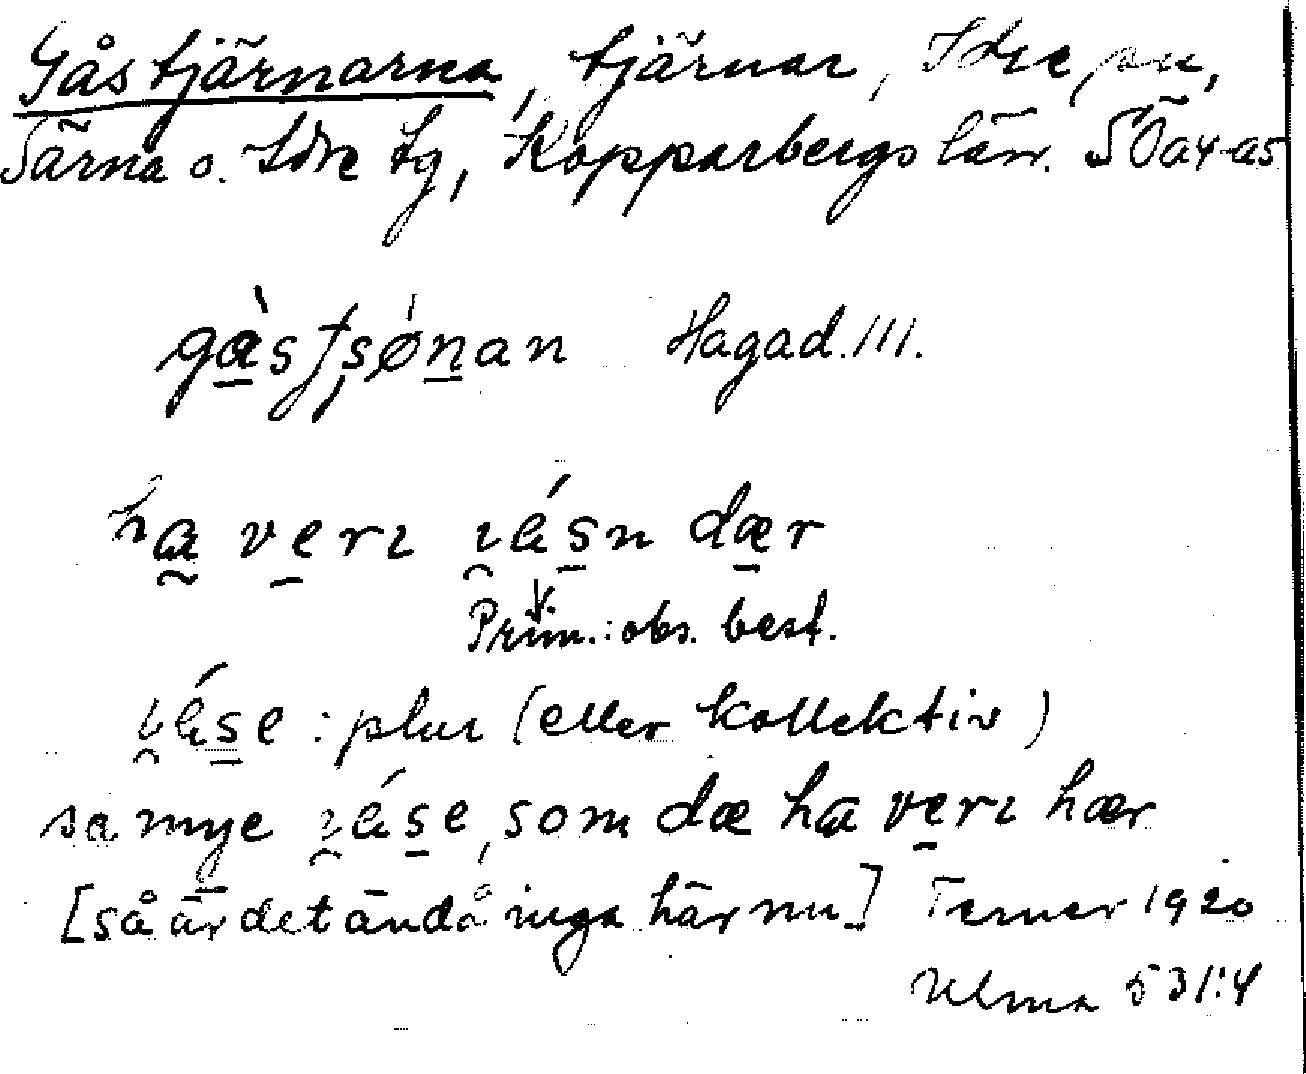 Gåstjärnarna, tjärnar, Idre sn,
Särna o. Idre tg, Kopparbergs län. SÖa4-a5
Hagad. III.
ha veri dær
Prim.: obs. best.
: plur (eller kollektiv)
sa mye som dæ ha veri hær
[så är det ändå inga här nu] Tener 1920
Ulma 531:4